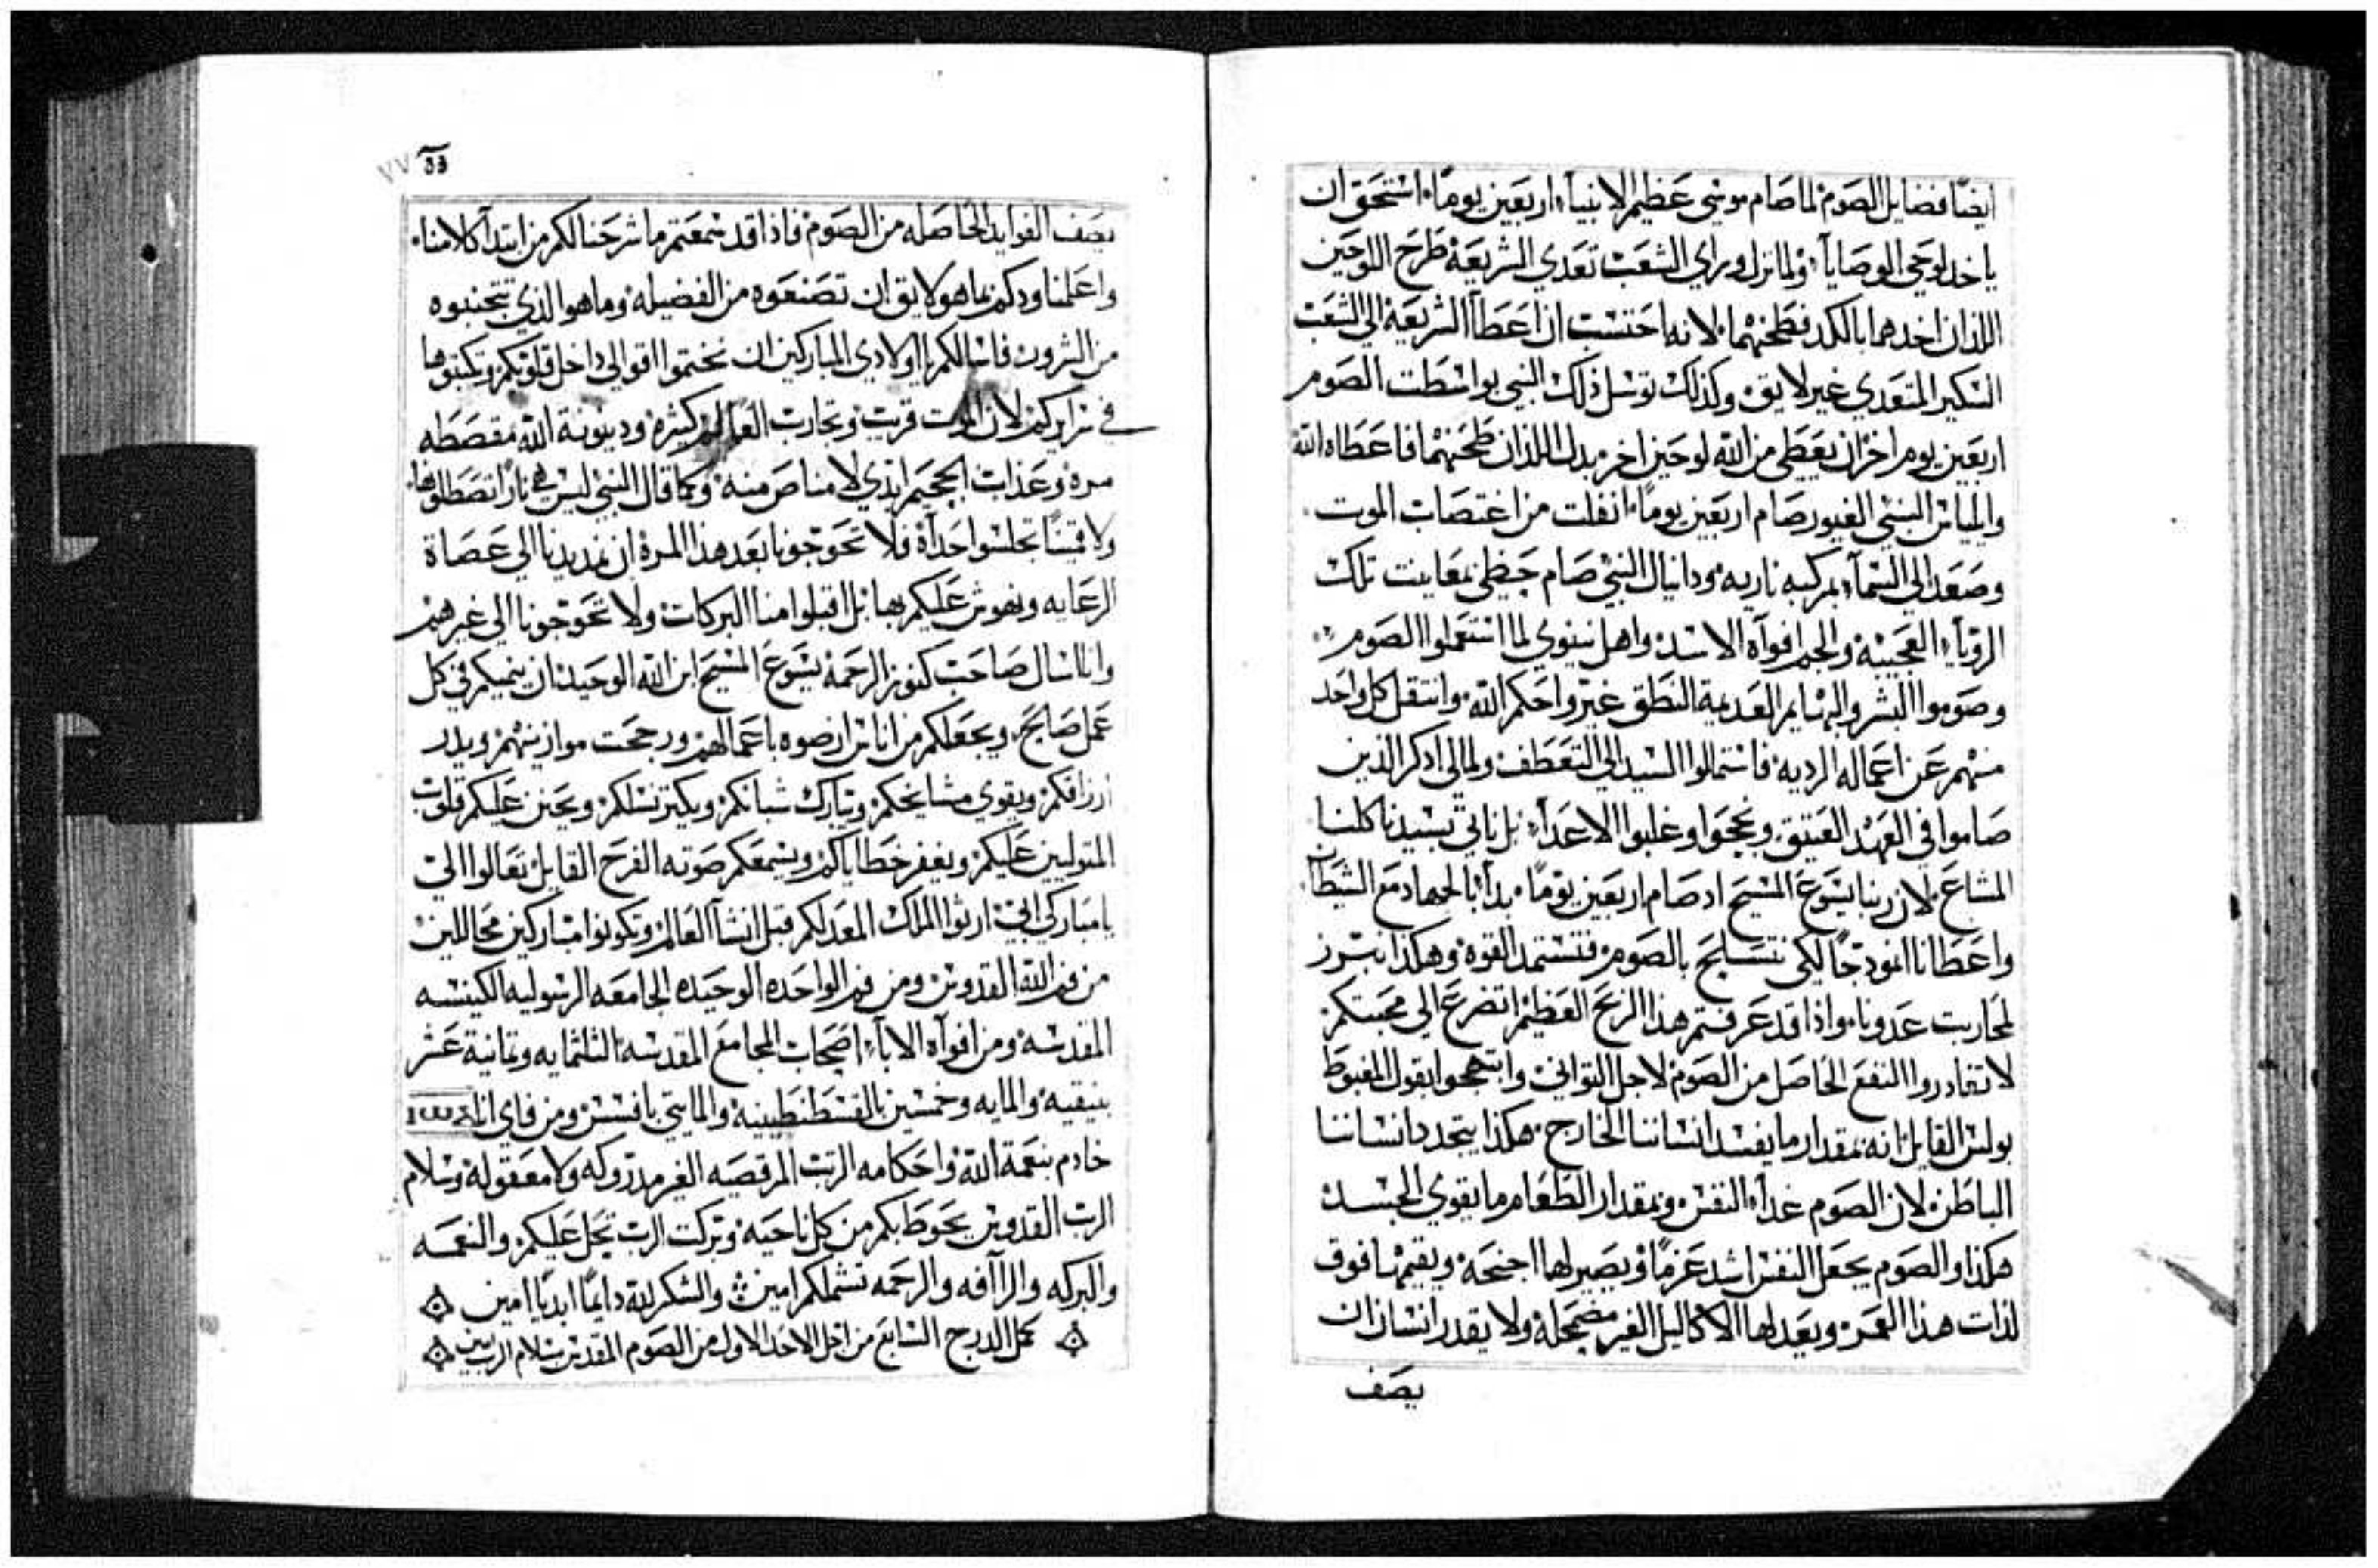 ايضًا فضايل الصوم لما صام موسي عظيم الانبياء اربعين يومًا استحق ان
ياخد لوحي الوصايا ولما نزل وراي الشعب تعدي الشريعة طرح اللوحين
اللذان اخدهما بالكد فطحنهما لانه احتسب ان اعطا الشريعة الي الشعب
السكير المتعدي غير لايق وكذلك توسل ذلك النبي بواسطت الصوم
اربعين يوم اخر ان يعطي من الله لوحين اخر بدل اللذان طحنهما فاعطاه الله
والياس النبي الغيور صام اربعين يومًا انفلت من اغتصاب الموت
وصعد الي السماء بمركبه ناريه ودانيال النبي صام حظي بمعاينت تلك
الروياء العجيبه والجم افواه الاسد واهل نينوي لما استعملوا الصوم
وصوموا البشر والبهايم العديمة النطق غيروا حكم الله وانتقل كل واحد
منهم عن اعماله الرديه فاستمالوا السيد الي التعطف ولمالي ادكر الذين
صاموا في العهد العتيق ونجحوا وغلبوا الاعداء بل ناتي بسيدنا كلنا
المشاع لان ربنا يسوع المسيح اد صام اربعين يومًا بدا بالجهاد مع الشيطان
واعطانا انمودجًا لكي نتسلح بالصوم فنستمد القوه وهكذا نبرز
لمحاربت عدونا واذا قد عرفتم هذا الربح العظيم اتضرع الي محبتكم
لا تغادروا النفع الحاصل من الصوم لاجل التواني وابتهجوا بقول المغبوط
بولس القايل انه بمقدار ما يفسد انساننا الخارج هكذا يتجدد انساننا
الباطن لان الصوم غداء النفس وبمقدار الطعام ما يقوي الجسد
هكذا والصوم يجعل النفس اشد عزمًا ويصير لها اجنحة ويقيمها فوق
لذات هذا العمر ويعد لها الاكاليل الغير مضمحلة ولا يقدر انسان ان
يصف
يصف الفوايد الحاصله من الصوم فاذا قد سمعتم ما شرحنا لكم من ابتدا كلامنا
واعلمنا ودكم بما هو لايق ان تصنعوه من الفضيلة وما هو الذي تتجنبوه
من الشرور فاسالكم يا اولادي المباركين ان تختموا اقوالي داخل قلوبكم وتكتبوها
في سرايركم لان الموت قريب وتجارب العالم كثيرة ودينونة الله مقصطه
مره وعذاب الجحيم الذي لا مناص منه وكما قال النبي ليس هي نارًا تصطلوا بها
ولا قبسًا تجلسوا حداة فلا تحوجونا بعد هذا المرة ان نمد يدنا الي عصاة
الرعايه ونهوش عليكم بها بل اقبلوا منا البركات ولا تحوجونا الي غيرهم
وانا اسال صاحب كنوز الرحمة يسوع المسيح ابن الله الوحيد ان ينميكم في كل
عمل صالح ويجعلكم من اناس ارضوه باعمالهم ورجحت موازينهم ويدر
ارزاقكم ويقوي مشايخكم ويبارك شبانكم ويكتر نسلكم ويحنن عليكم قلوب
المتوليين عليكم ويغفر خطاياكم ويسمعكم صوته الفرح القايل تعالوا الي
يا مباركي ابي ارثوا الملك المعد لكم قبل انشا العالم وتكونوا مباركين محاللين
من فم الله القدوس ومن فم الواحده الوحيده الجامعه الرسوليه الكنيسه
المقدسه ومن افواه الاباء اصحاب المجامع المقدسه الثلثمايه وتمانية عشر
بنيقيه والمايه وخمسين بالقسطنطينية والمايتي بافسس ومن فاي انا
خادم بنعمة الله واحكامه الرتب المرقصيه الغير مدروكه ولا معقولة وسلام
الرب القدوس يحوط بكم من كل ناحيه وبركت الرب تحل عليكم والنعمه
والبركه والراافه والرحمه تشملكم امين والشكر لله دايمًا ابديًا امين
كمل الدرج السابع من اجل الاحد الاول من الصوم المقدس بسلام الرب امين